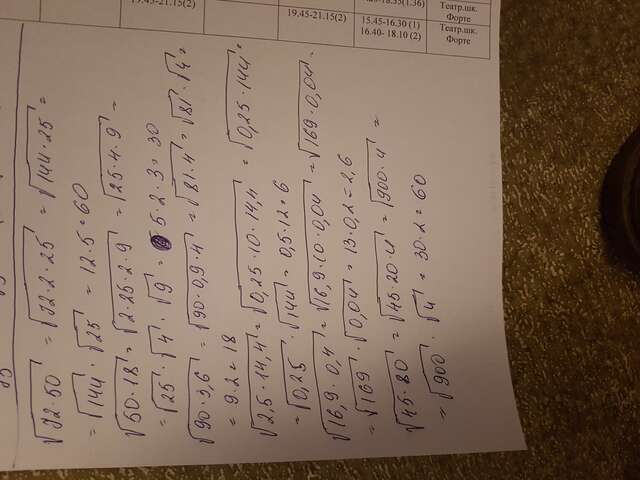 √72·50 = √72·2·25 = √144·25 =
= √144 · √25 = 12·5 = 60
√50·18 = √2·25·2·9 = √25·4·9 =
= √25 · √4 · √9 = 5·2·3 = 30
√90·3,6 = √90·0,9·4 = √81·4 = √81 · √4 =
= 9·2 = 18
√2,5·14,4 = √0,25·10·14,4 = √0,25·144 =
= √0,25 · √144 = 0,5·12 = 6
√16,9·0,4 = √16,9·10·0,04 = √169·0,04 =
= √169 · √0,04 = 13·0,2 = 2,6
√45·80 = √45·20·4 = √900·4 =
= √900 · √4 = 30·2 = 60
19.45-21.15(2)
15.45-16.30 (1)
16.40- 18.10 (2)
Театр.шк.
Форте
Театр.шк.
Форте